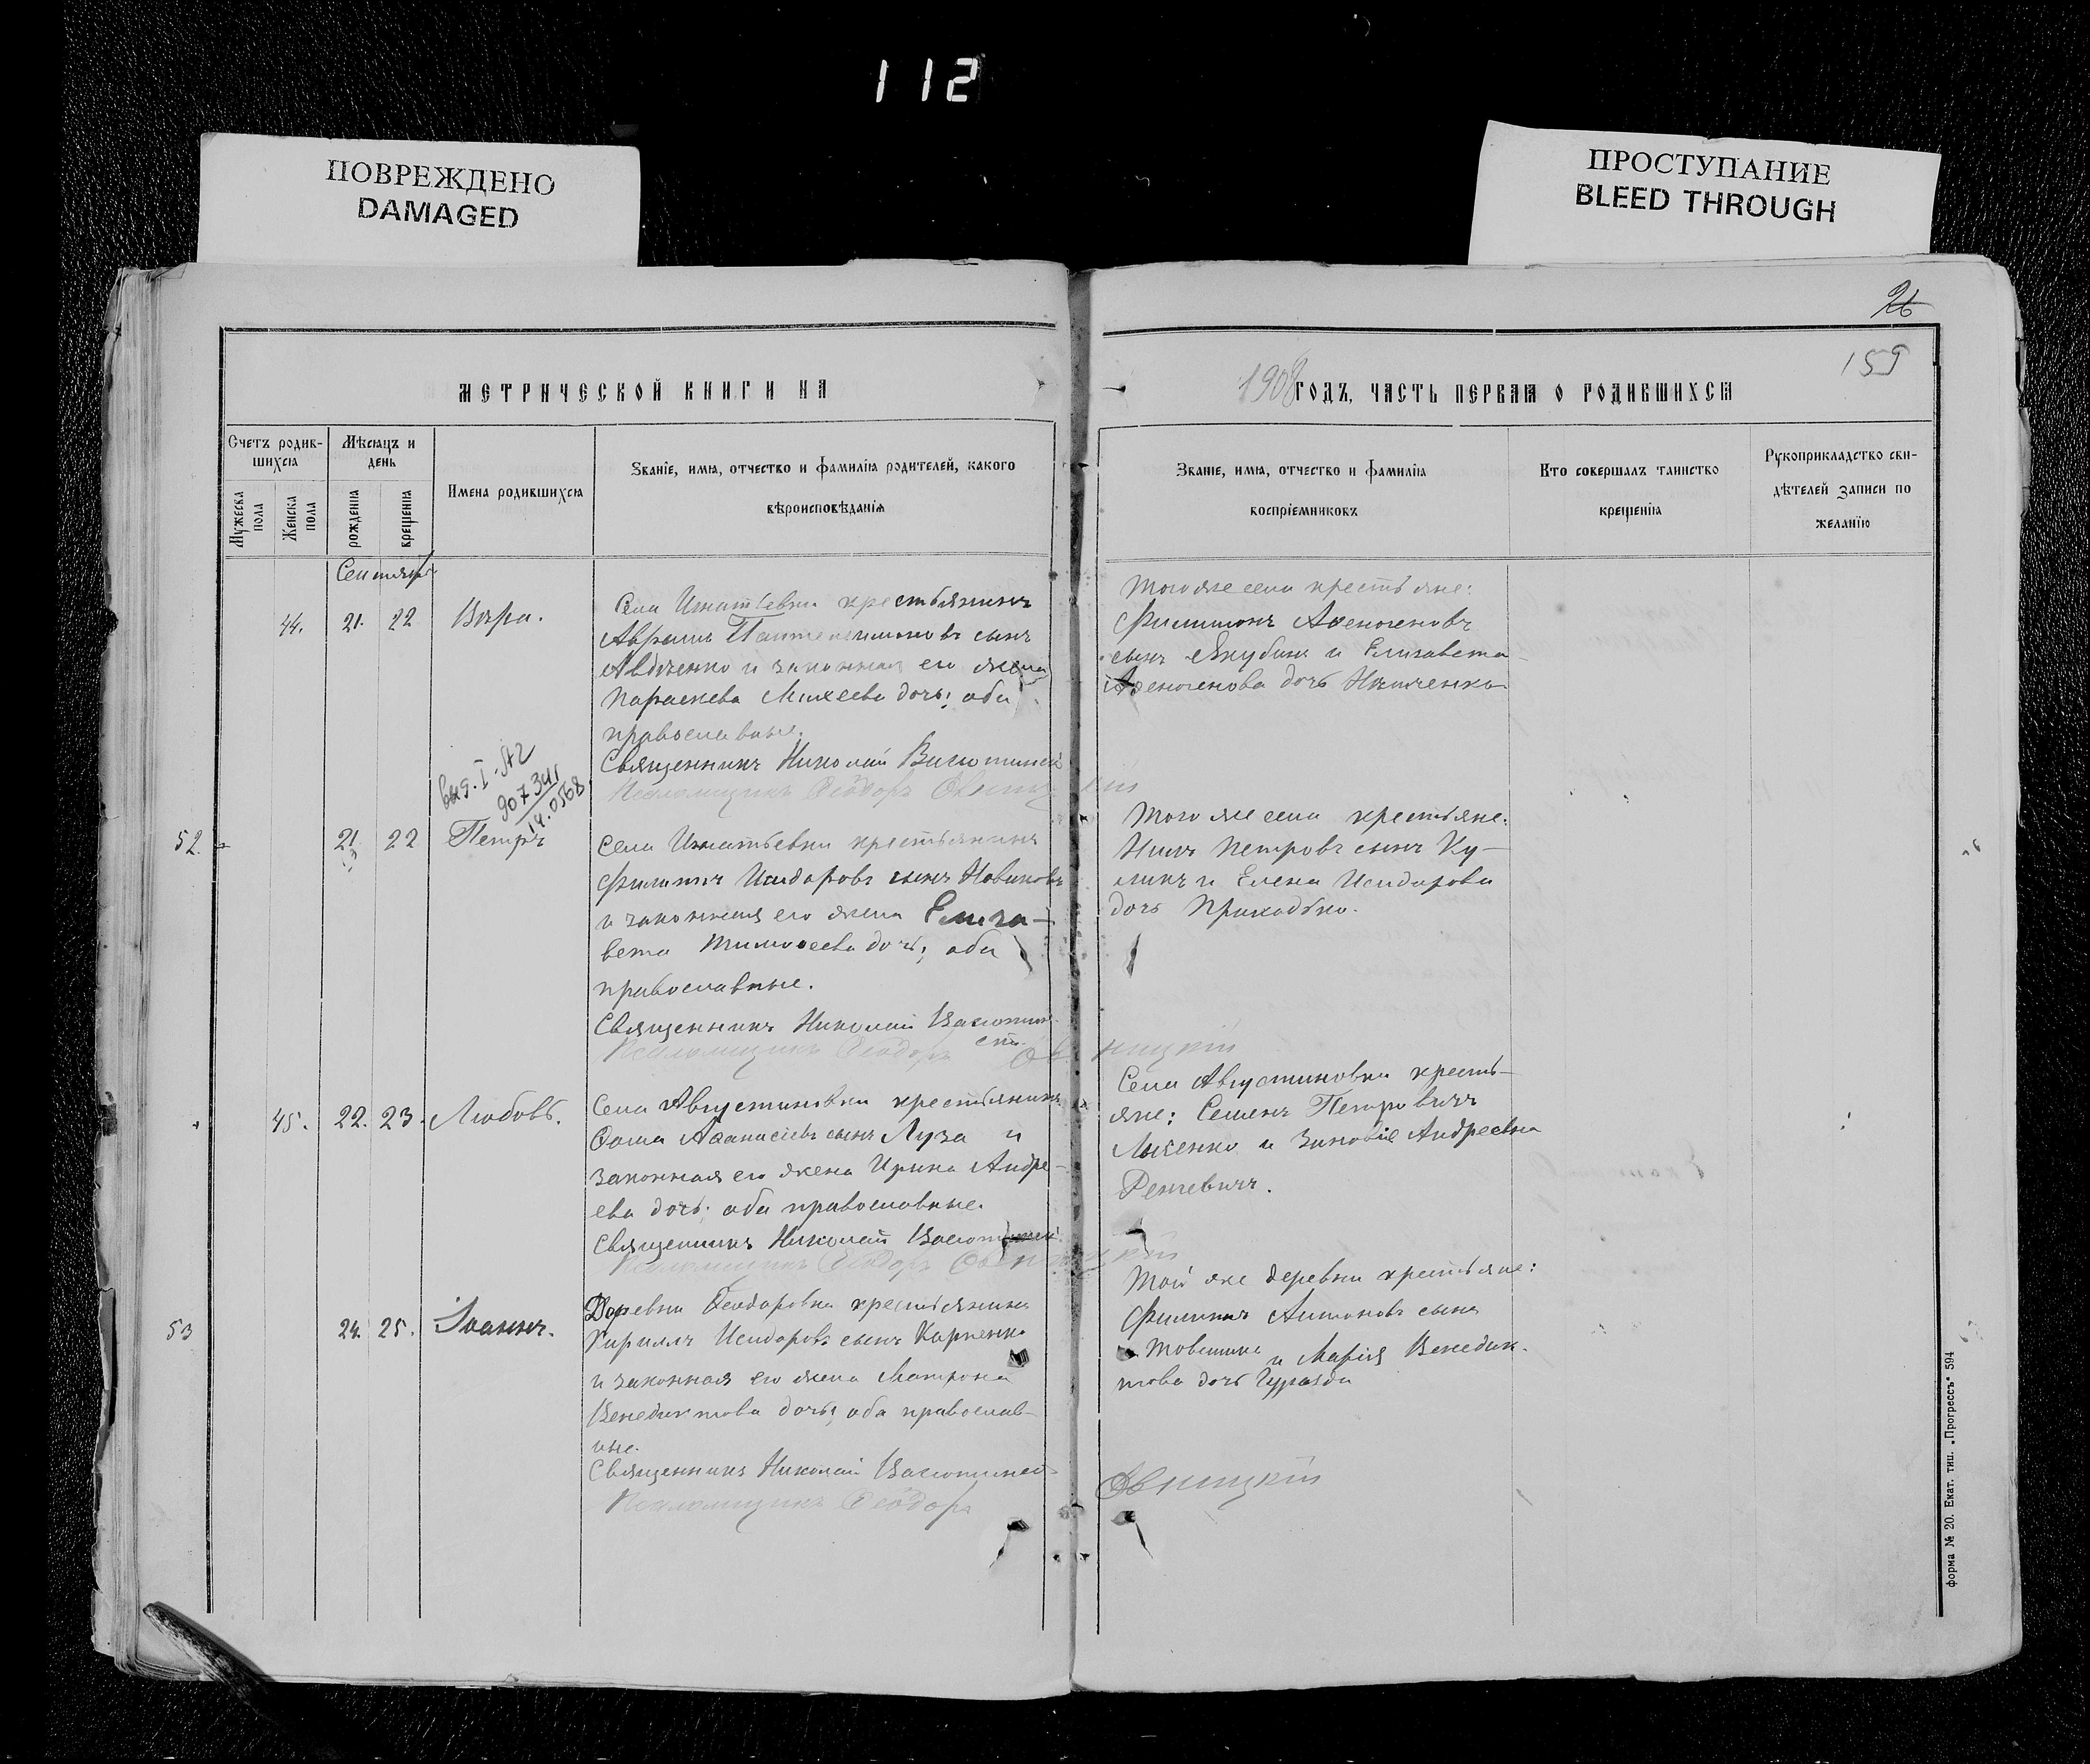 112
ПОВРЕЖДЕНО
DAMAGED
ПРОСТУПАНИЕ
BLEED THROUGH
26
159
МЕТРИЧЕСКОЙ КНИГИ НА
1908 ГОДЪ, ЧАСТЬ ПЕРВАЯ О РОДИВШИХСЯ
Счетъ родив-
шихся
Мѣсяцъ и
день
Мужеска
пола
Женска
пола
рожденія
крещенія
Имена родившихся
Званіе, имя, отчество и фамилія родителей, какого
вѣроисповѣданія
Званіе, имя, отчество и фамилія
воспріемниковъ
Кто совершалъ таинство
крещенія
Рукоприкладство сви-
дѣтелей записи по
желанію
Сентябрь
44. 21. 22 Вѣра.
Села Игнатьевки крестьянинъ
Аврамъ Пантелеимоновъ сынъ
и законная его жена
Параскева Михеева дочь; оба
православные.
Священникъ Николай
Псаломщикъ Ѳеодоръ
Того же села крестьяне:
Филимонъ
сынъ Якубинъ и Елизавета
дочь
I-А2
907341
14.0568
52. 21 22 Петръ
Села Игнатьевки крестьянинъ
Филиппъ Исидоровъ сынъ Новиковъ
и законная его жена Елиза-
вета Тимоѳеева дочь; оба
православные.
Священникъ Николай
Псаломщикъ Ѳеодоръ
Того же села крестьяне:
Нилъ Петровъ сынъ Ку-
ликъ и Елена Исидорова
дочь Приходько.
45. 22. 23. Любовь.
Села Августиновки крестьянинъ
Ѳома Аѳанасіевъ сынъ Луза и
законная его жена Ирина Андре-
ева дочь; оба православные.
Священникъ Николай
Псаломщикъ Ѳеодоръ
Села Августиновки кресть-
яне: Семенъ Петровичъ
Лысенко и Зиновія Андреевна
53 24. 25. Іоаннъ.
Деревни Ѳеодоровки крестьянинъ
Кириллъ Исидоровъ сынъ Карпенко
и законная его жена Матрона
Венедиктова дочь; оба православ-
ные.
Священникъ Николай
Псаломщикъ Ѳеодоръ
Той же деревни крестьяне:
Филиппъ Антоновъ сынъ
и Марія Венедик-
това дочь
форма № 20. Екат. тип. „Прогрессъ“ 594